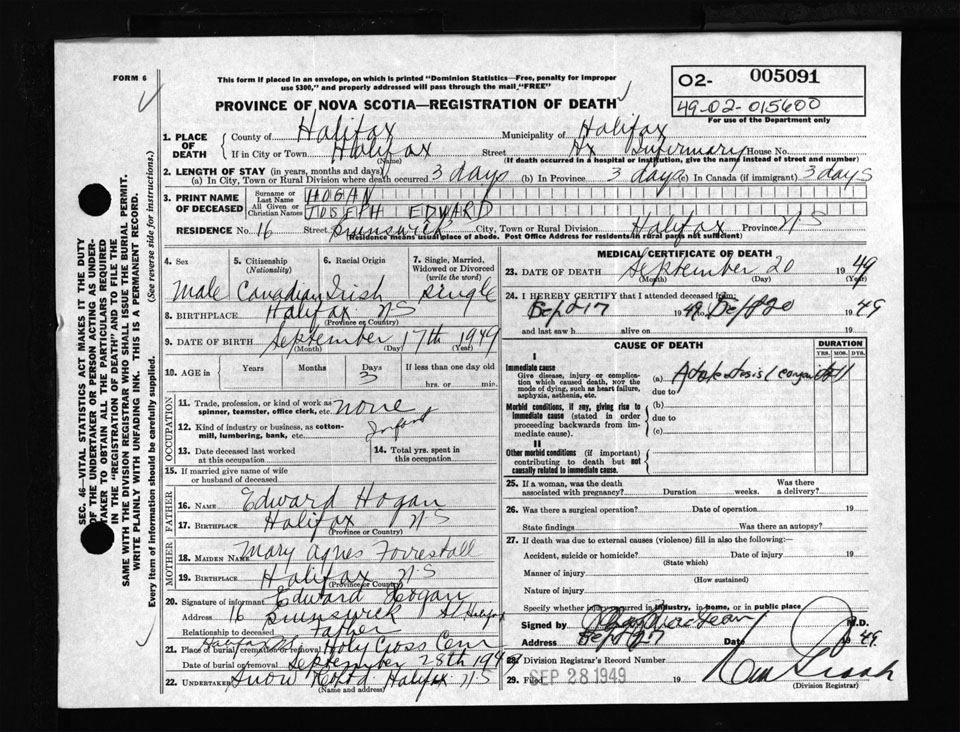 FORM 6
This form if placed in an envelope, on which is printed "Dominion Statistics—Free, penalty for improper
use $300," and properly addressed will pass through the mail "FREE"
PROVINCE OF NOVA SCOTIA—REGISTRATION OF DEATH
02- 005091
49-02-015600
For use of the Department only
1. PLACE OF DEATH County of Halifax Municipality of Halifax
If in City or Town Halifax Street Hx Infirmary House No.
(Name) (If death occurred in a hospital or institution, give the name instead of street and number)
2. LENGTH OF STAY (in years, months and days)
(a) In City, Town or Rural Division where death occurred 3 days (b) In Province 3 days (c) In Canada (if immigrant) 3 days
3. PRINT NAME OF DECEASED Surname or Last Name HOGAN
All Given or Christian Names JOSEPH EDWARD
RESIDENCE No. 16 Street Brunswick City, Town or Rural Division Halifax Province N.S
(Residence means usual place of abode. Post Office Address for residents in rural parts not sufficient)
4. Sex 5. Citizenship (Nationality) 6. Racial Origin 7. Single, Married, Widowed or Divorced (write the word)
Male Canadian Irish Single
8. BIRTHPLACE Halifax N.S
(Province or Country)
9. DATE OF BIRTH September 17th 1949
(Month) (Day) (Year)
10. AGE in Years Months Days If less than one day old
3 hrs. or min.
OCCUPATION
11. Trade, profession, or kind of work as spinner, teamster, office clerk, etc. none
12. Kind of industry or business, as cotton-mill, lumbering, bank, etc. Infant
13. Date deceased last worked at this occupation
14. Total yrs. spent in this occupation
15. If married give name of wife or husband of deceased
FATHER
16. Name Edward Hogan
17. Birthplace Halifax N.S
(Province or Country)
MOTHER
18. Maiden Name Mary Agnes Forrestall
19. Birthplace Halifax N.S
(Province or Country)
20. Signature of informant Edward Hogan
Address 16 Brunswick St Halifax
Relationship to deceased Father
21. Place of burial, cremation or removal Halifax Holy Cross Cem
Date of burial or removal September 28th 1949
22. Undertaker Snow Halifax N.S
(Name and address)
MEDICAL CERTIFICATE OF DEATH
23. DATE OF DEATH September 20 1949
(Month) (Day) (Year)
24. I HEREBY CERTIFY that I attended deceased from:
Sept 17 1949 to Sept 20 1949
and last saw h alive on 19
CAUSE OF DEATH
DURATION
YRS. MOS. DYS.
I
Immediate cause
Give disease, injury or complication which caused death, NOT the mode of dying, such as heart failure, asphyxia, asthenia, etc.
(a) Atelectasis (congenital)
due to
Morbid conditions, if any, giving rise to immediate cause (stated in order proceeding backwards from immediate cause).
(b)
due to
(c)
II
Other morbid conditions (if important) contributing to death but not causally related to immediate cause.
25. If a woman, was the death associated with pregnancy? Duration weeks. Was there a delivery?
26. Was there a surgical operation? Date of operation 19
State findings Was there an autopsy?
27. If death was due to external causes (violence) fill in also the following:—
Accident, suicide or homicide? Date of injury 19
(State which)
Manner of injury
(How sustained)
Nature of injury
Specify whether injury occurred in industry, in home, or in public place
Signed by M.D.
Address Sept 27 Date 1949
28. Division Registrar's Record Number
29. Filed SEP 28 1949 19
(Division Registrar)
SEC. 46—VITAL STATISTICS ACT MAKES IT THE DUTY
OF THE UNDERTAKER OR PERSON ACTING AS UNDER-
TAKER TO OBTAIN ALL THE PARTICULARS REQUIRED
IN THE "REGISTRATION OF DEATH" AND TO FILE THE
SAME WITH THE DIVISION REGISTRAR WHO SHALL ISSUE THE BURIAL PERMIT.
WRITE PLAINLY WITH UNFADING INK. THIS IS A PERMANENT RECORD.
Every item of information should be carefully supplied. (See reverse side for instructions.)